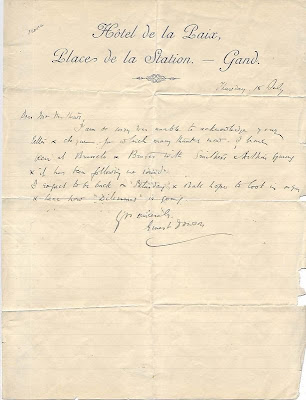 Hôtel de la Paix,
Places de la Station. — Gand.
Thursday 18 July
Dear Mr
I am so sorry been unable to acknowledge your
letter & cheque for which many thanks now. I have
been at Brussels & Bruges with Smithers, Arthur
& it has been following me round.
I expect to be back on Saturday, & shall hope to look in
& hear how "Dilemmas" is going
Yrs sincerely
Ernest Dowson